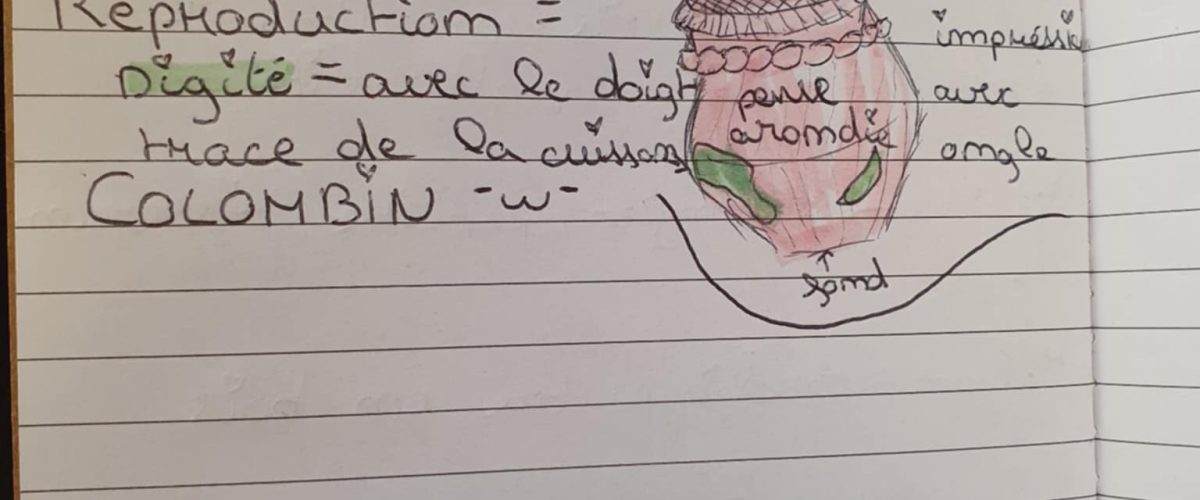 Reproduction =
Digité = avec le doigt
trace de la cuisson
COLOMBIN -w-
panse
arondie
fond
impréssion
avec
ongle